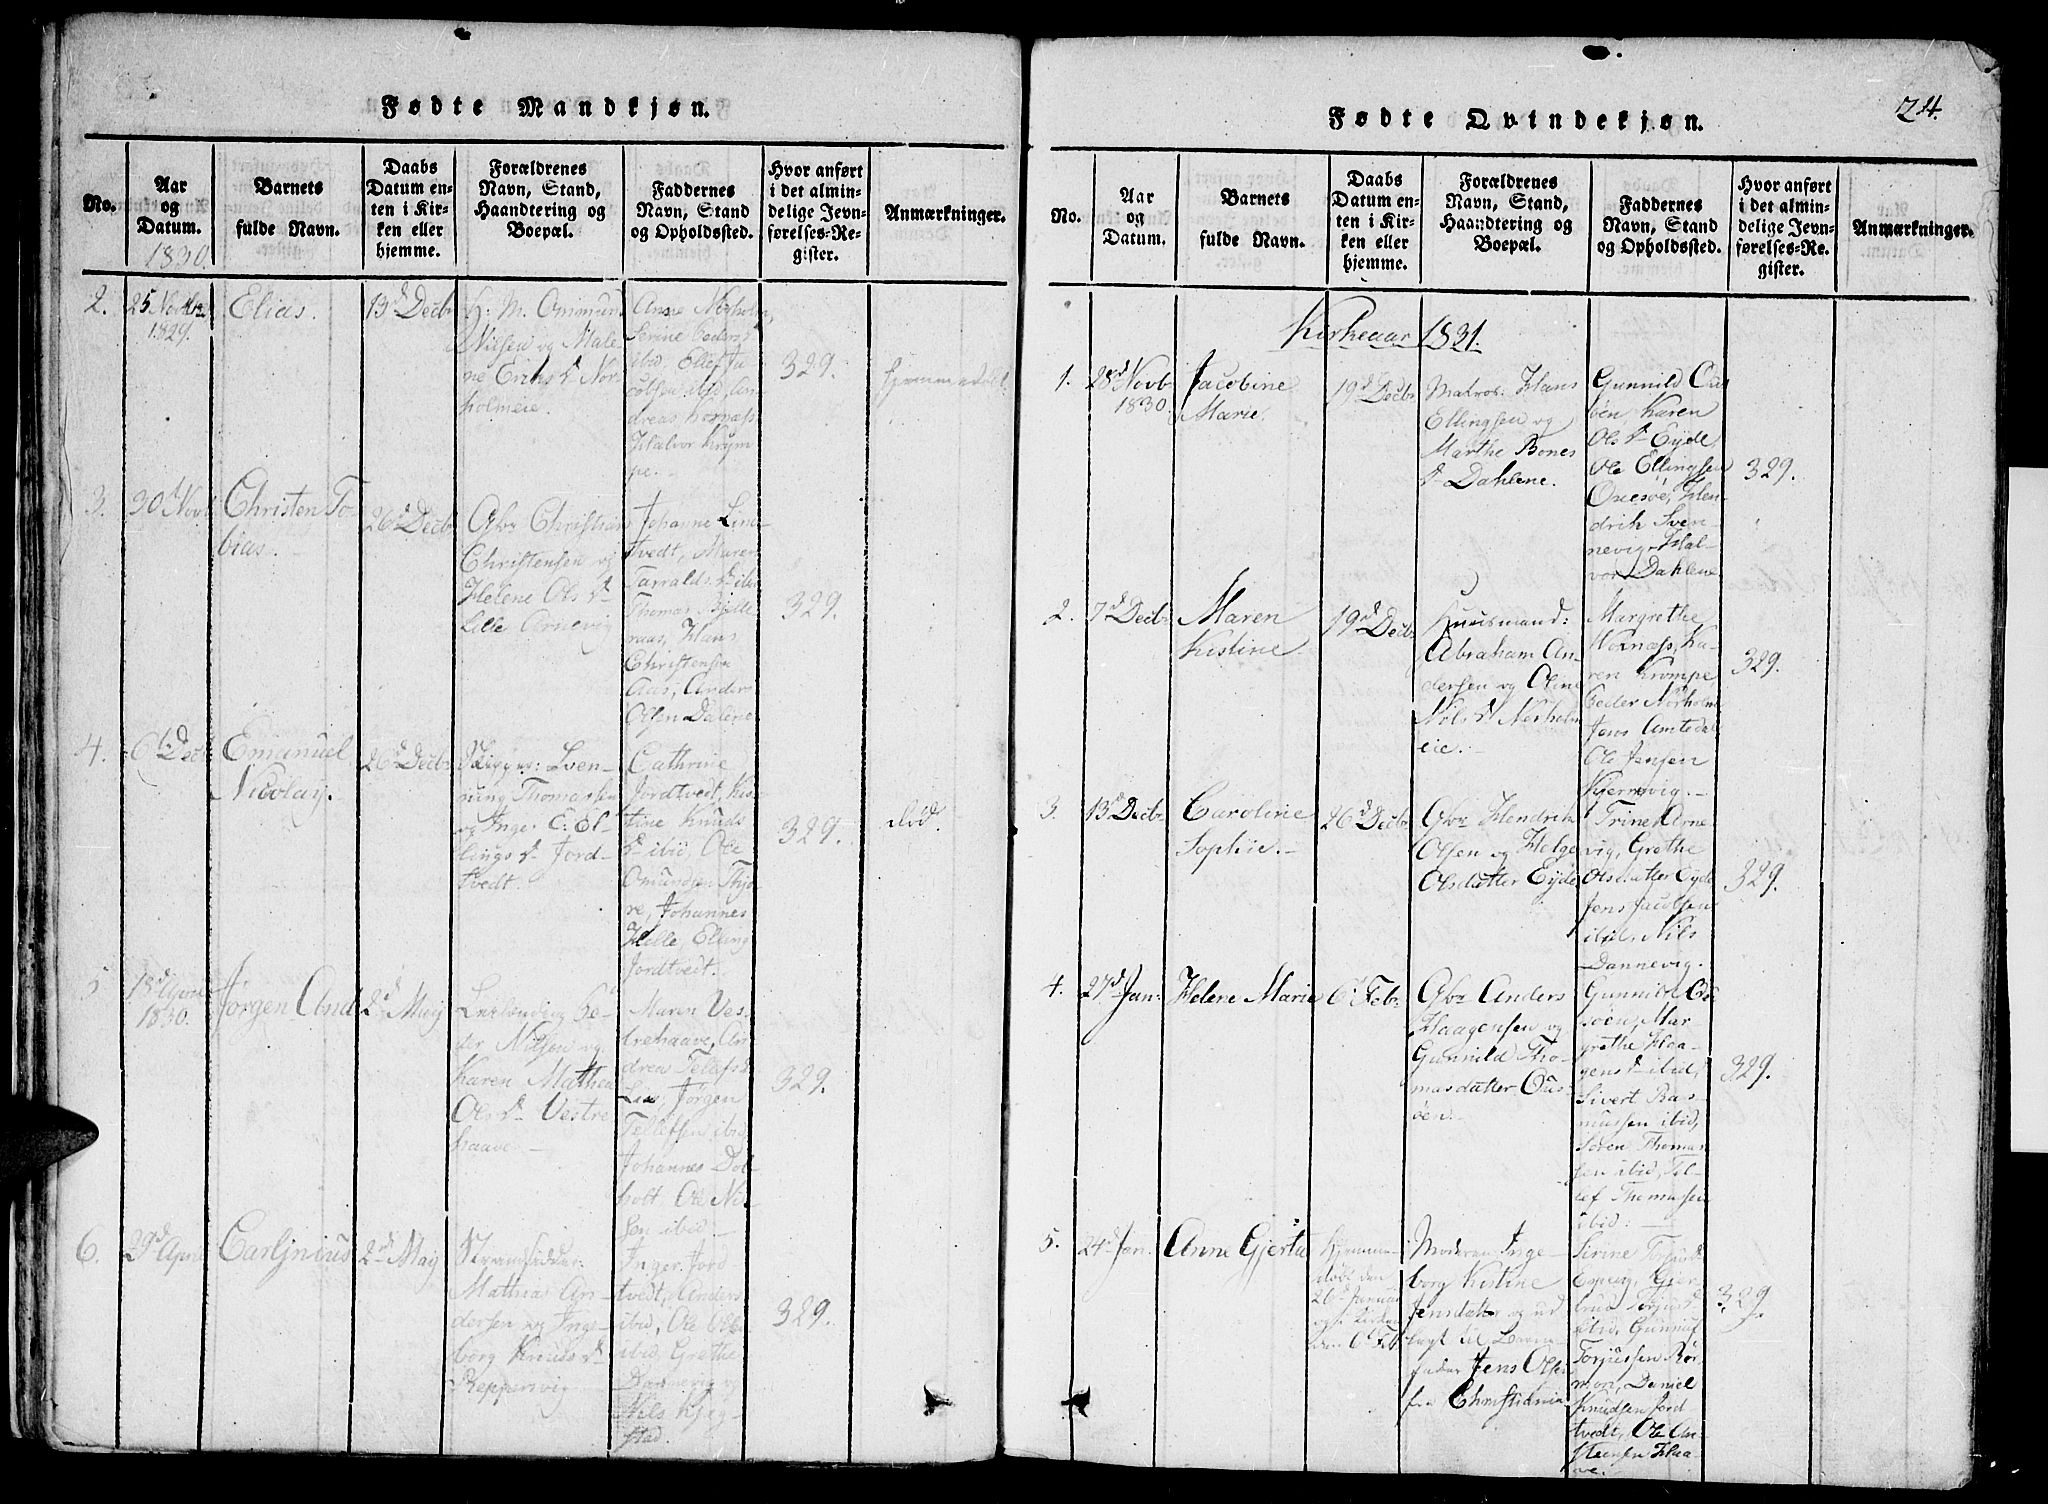 Fødte Mandkjøn.
No.
Aar
og
Datum.
1830.
Barnets
fulde Navn.
Daabs
Datum en-
ten i Kir-
ken eller
hjemme.
Forældrenes
Navn, Stand,
Haandtering og
Boepæl.
Faddernes
Navn, Stand
og Opholdssted.
Hvor anført
i det almin-
delige Jevn-
førelses-Re-
gister.
Anmærkninger.
2.
25 Novbr
1829.
Elias.
13d Decbr
H: M. Ommund
Nilsen og Male
ne Eriks D Nor-
holmeie.
Anne Norholm,
Serine Peders D
ibid, Ellef Ja
cobsen ibid, An
dreas Hornæss,
Halvor Krym
pe.
329.
hjemmedøbt.
3.
30 Novb
Christen To-
bias.
26d Decbr
Gbr Christian
Christensen og
Helene Ols D
Lille Arnevig
Johanne Lind-
tvedt, Maren
Tarralds D ibid
Thomas Bjelle
raas, Hans
Christensen
Aas, Anders
Olsen Dalene
329.
4.
6t Decb
Emanuel
Nicolay.
26d Decbr
Rigger: Sven-
ning Thomassen
og Inge: C: El-
lings D Jord-
tvedt.
Cathrine
Jordtvedt, Kis-
tine Knuds
D ibid, Ole
Omundsen Thjo-
re, Johannes
Helle, Elling
Jordtvedt.
329.
død.
5
18d April
1830.
Jørgen And
2d Maj
Inderst Pe-
der Nilsen og
Karen Mathea
Ols D Vestre
haave
Maren Ves-
trehaave, An
drea Telefs D
Lia, Jørgen
Tellefsen ibid
Johannes Dol-
holt, Ole Nil-
sen ibid:
329.
6.
29d April
Carljnius
2d Maj
Strandsidder:
Mathias An-
dersen og Inge-
borg Knuds D
Reppersvig
Inger Jord-
tvedt, Anders
ibid, Ole Olse
ibid, Grethe
Dannevig og
Nils Kjeg-
stad.
329.
Fødte Qvindekjøn.
24.
No.
Aar
og
Datum.
Barnets
fulde Navn.
Daabs
Datum en-
ten i Kir-
ken eller
hjemme.
Forældrenes
Navn, Stand,
Haandtering og
Boepæl.
Faddernes
Navn, Stand
og Opholdssted.
Hvor anført
i det almin-
delige Jevn-
førelses-Re-
gister.
Anmærkninger.
Kirkeaar 1831.
1.
28d Novb
1830.
Jacobine
Marie.
19d Decbr
Matros: Hans
Ellingsen og
Marthe Bones
D Dahlene.
Gunnild Ous
øen Karen
Ols D Eyde
Ole Ellingsen
Ousøe, Hen-
drik Sven-
nevig, Hal-
vor Dahlene
329.
2.
7d Decbr
Maren
Kistine
19d Decbr
Huusmand:
Abraham An-
dersen og Oline
Nils D Norholm
eie.
Margrethe
Hornæss, Ka-
ren Krompe
Peder Norholm
Jens Amtedal
Ole Jensen
Kjernvig.
329.
3.
13d Decbr
Caroline
Sophie.
26d Decbr
Gbr Hendrik
Olsen og Helge
Olsdatter Eyde
Trine Arne
vig, Grethe
Olsdatter Eyde
Jens Jacobsen
ibid, Nils
Dannevig.
329.
4.
27d Jan:
Helene Marie
6t Febr
Gbr Anders
Haagensen og
Gunnild Tho-
masdatter Ous-
øen.
Gunnild Ou-
søen, Mar-
grethe Haa-
gens D ibid,
Sivert Ras-
mussen ibid,
Søren Thomas
sen ibid, Tel-
lef Thomassen
ibid:
329.
5.
24d Jan.
Anne Gjertu
Hjemme-
døbt den
26d Januar
og i Kirken
den 6t Feb
Moderen Inge-
borg Kistine
Jensdatter og ud
lagt til Barne
fader Jens Olsen
fra Christiania
Sirine Torjus D
Espevig, Gjer
trud Torjus D
ibid, Gunnuf
Torjussen Rør-
mon, Daniel
Knudsen Jord
tvedt, Ole An-
steensen Haa-
ve.
329.